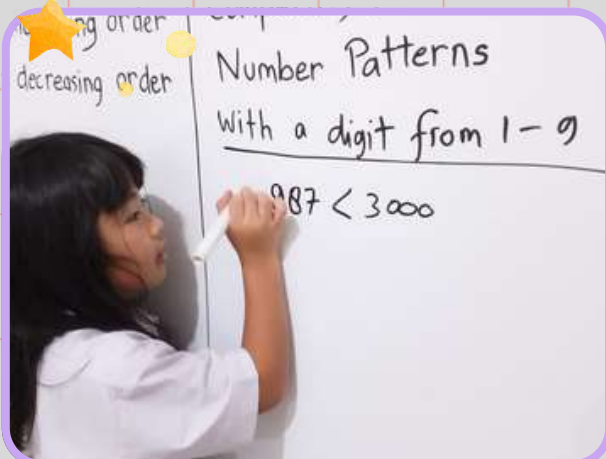 order
decreasing order
Number Patterns
With a digit from 1 - 9
987 < 3000